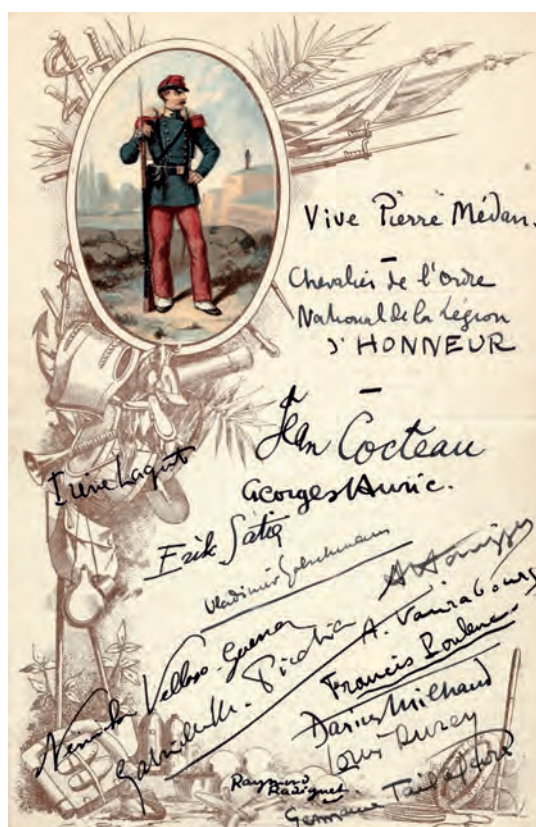 Vive Pierre Médan.
Chevalier de l'ordre
National de la Légion
d'HONNEUR
Jean Cocteau
Georges Auric.
Irène Lagut
Erik Satie
Vladimir Golschmann
A Honegger
Nininha Velloso-Guerra
Gabrielle Picabia
A. Vaurabourg
Francis Poulenc
Darius Milhaud
Louis Durey
Raymond
Radiguet
Germaine Tailleferre